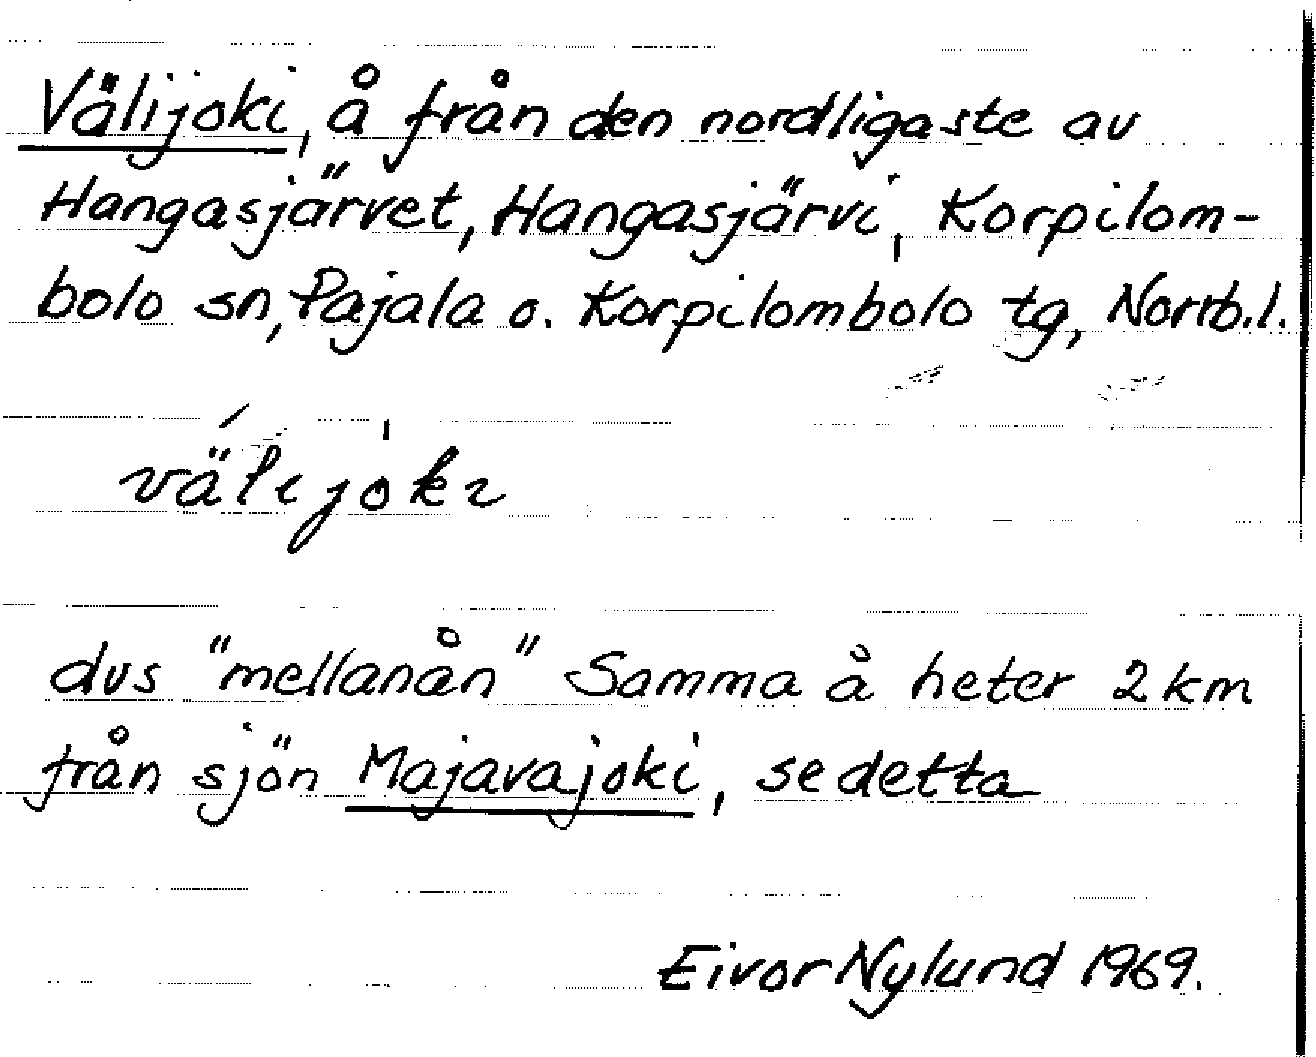 Välijoki, å från den nordligaste av
Hangasjärvet, Hangasjärvi, Korpilom-
bolo sn, Pajala o. Korpilombolo tg, Norrb.l.
välijoki
dvs "mellanån" Samma å heter 2 km
från sjön Majavajoki, se detta
Eivor Nylund 1969.